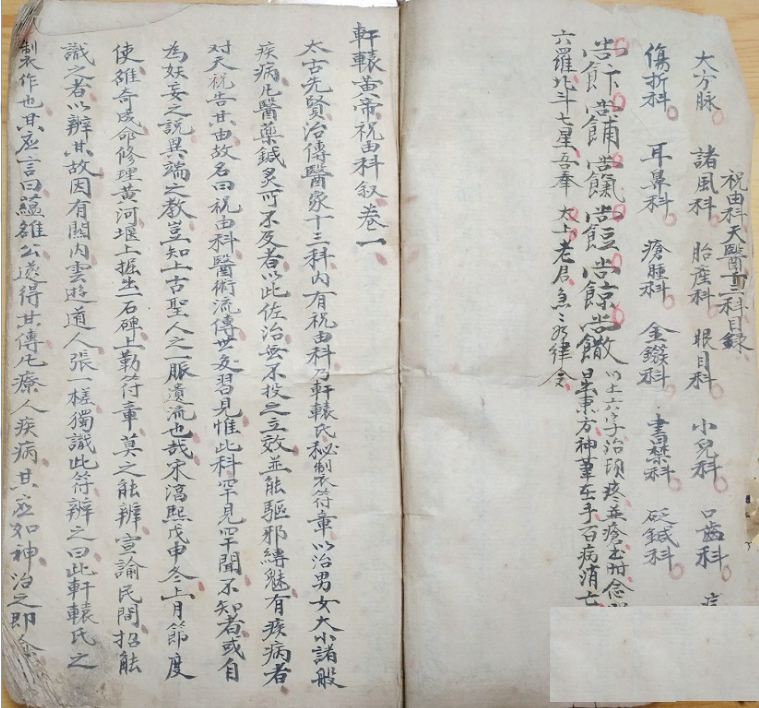 祝由科天醫十三科目錄
大方脉 諸風科 胎產科 眼目科 小兒科 口齒科
傷折科 耳鼻科 瘡腫科 金鏃科 書禁科 砭鍼科
以上六字治頭疼並瘡出時念
星東方神筆在手百病消亡
六羅北斗七星吾奉 太上老君急急如律令
軒轅黃帝祝由科叙卷一
太古先賢治傳醫家十三科內有祝由科乃軒轅氏秘制衣符章以治男女大小諸般
疾病凢醫藥鍼灸所不及者以此佐治無不投之立效並能驅邪縛魅有疾病者
对天祝告其由故名曰祝由科醫術流傳世多習見惟此科罕見罕聞不知者或自
為妖妄之說異端之教豈知上古聖人之一脈遺流也哉宋淳熙戊申冬上月節度
使雒奇成命修理黃河堰上掘出一石碑上勒符章莫之能辨宣諭民間招能
識之者以辨其故因有關內雲遊道人張一槎獨識此符辨之曰此軒轅氏之
製作也其應言曰蘊雒公遂得其傳凢療人疾病其應如神治之即